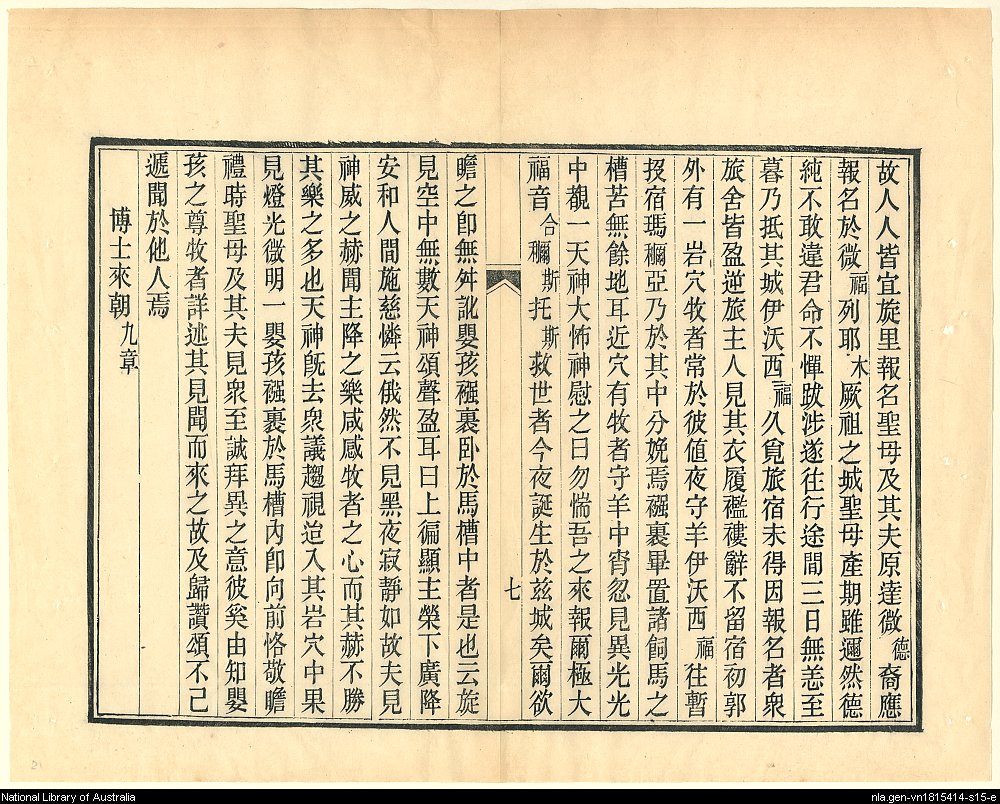 故人人皆宜旋里報名聖母及其夫原達微德裔應
報名於微福列耶木厥祖之城聖母產期雖邇然德
純不敢違君命不憚跋涉遂往行途間三日無恙至
暮乃抵其城伊沃西福久覓旅宿未得因報名者衆
旅舍皆盈逆旅主人見其衣履襤褸辭不留宿初郭
外有一岩穴牧者常於彼値夜守羊伊沃西福往暫
投宿瑪穪亞乃於其中分娩焉襁裹畢置諸飼馬之
槽苦無餘地耳近穴有牧者守羊中宵忽見異光光
中覩一天神大怖神慰之曰勿惴吾之來報爾極大
福音合穪斯托斯救世者今夜誕生於玆城矣爾欲
七
瞻之卽無舛訛嬰孩襁裹卧於馬槽中者是也云旋
見空中無數天神頌聲盈耳曰上徧顯主榮下廣降
安和人間施慈憐云俄然不見黑夜寂靜如故夫見
神威之赫聞主降之樂咸感牧者之心而其赫不勝
其樂之多也天神旣去衆議趨視迨入其岩穴中果
見燈光微明一嬰孩襁裹於馬槽內卽向前恪敬瞻
禮時聖母及其夫見衆至誠拜異之意彼奚由知嬰
孩之尊牧者詳述其見聞而來之故及歸讚頌不已
遞聞於他人焉
博士來朝九章
National Library of Australia
nla.gen-vn1815414-s15-e